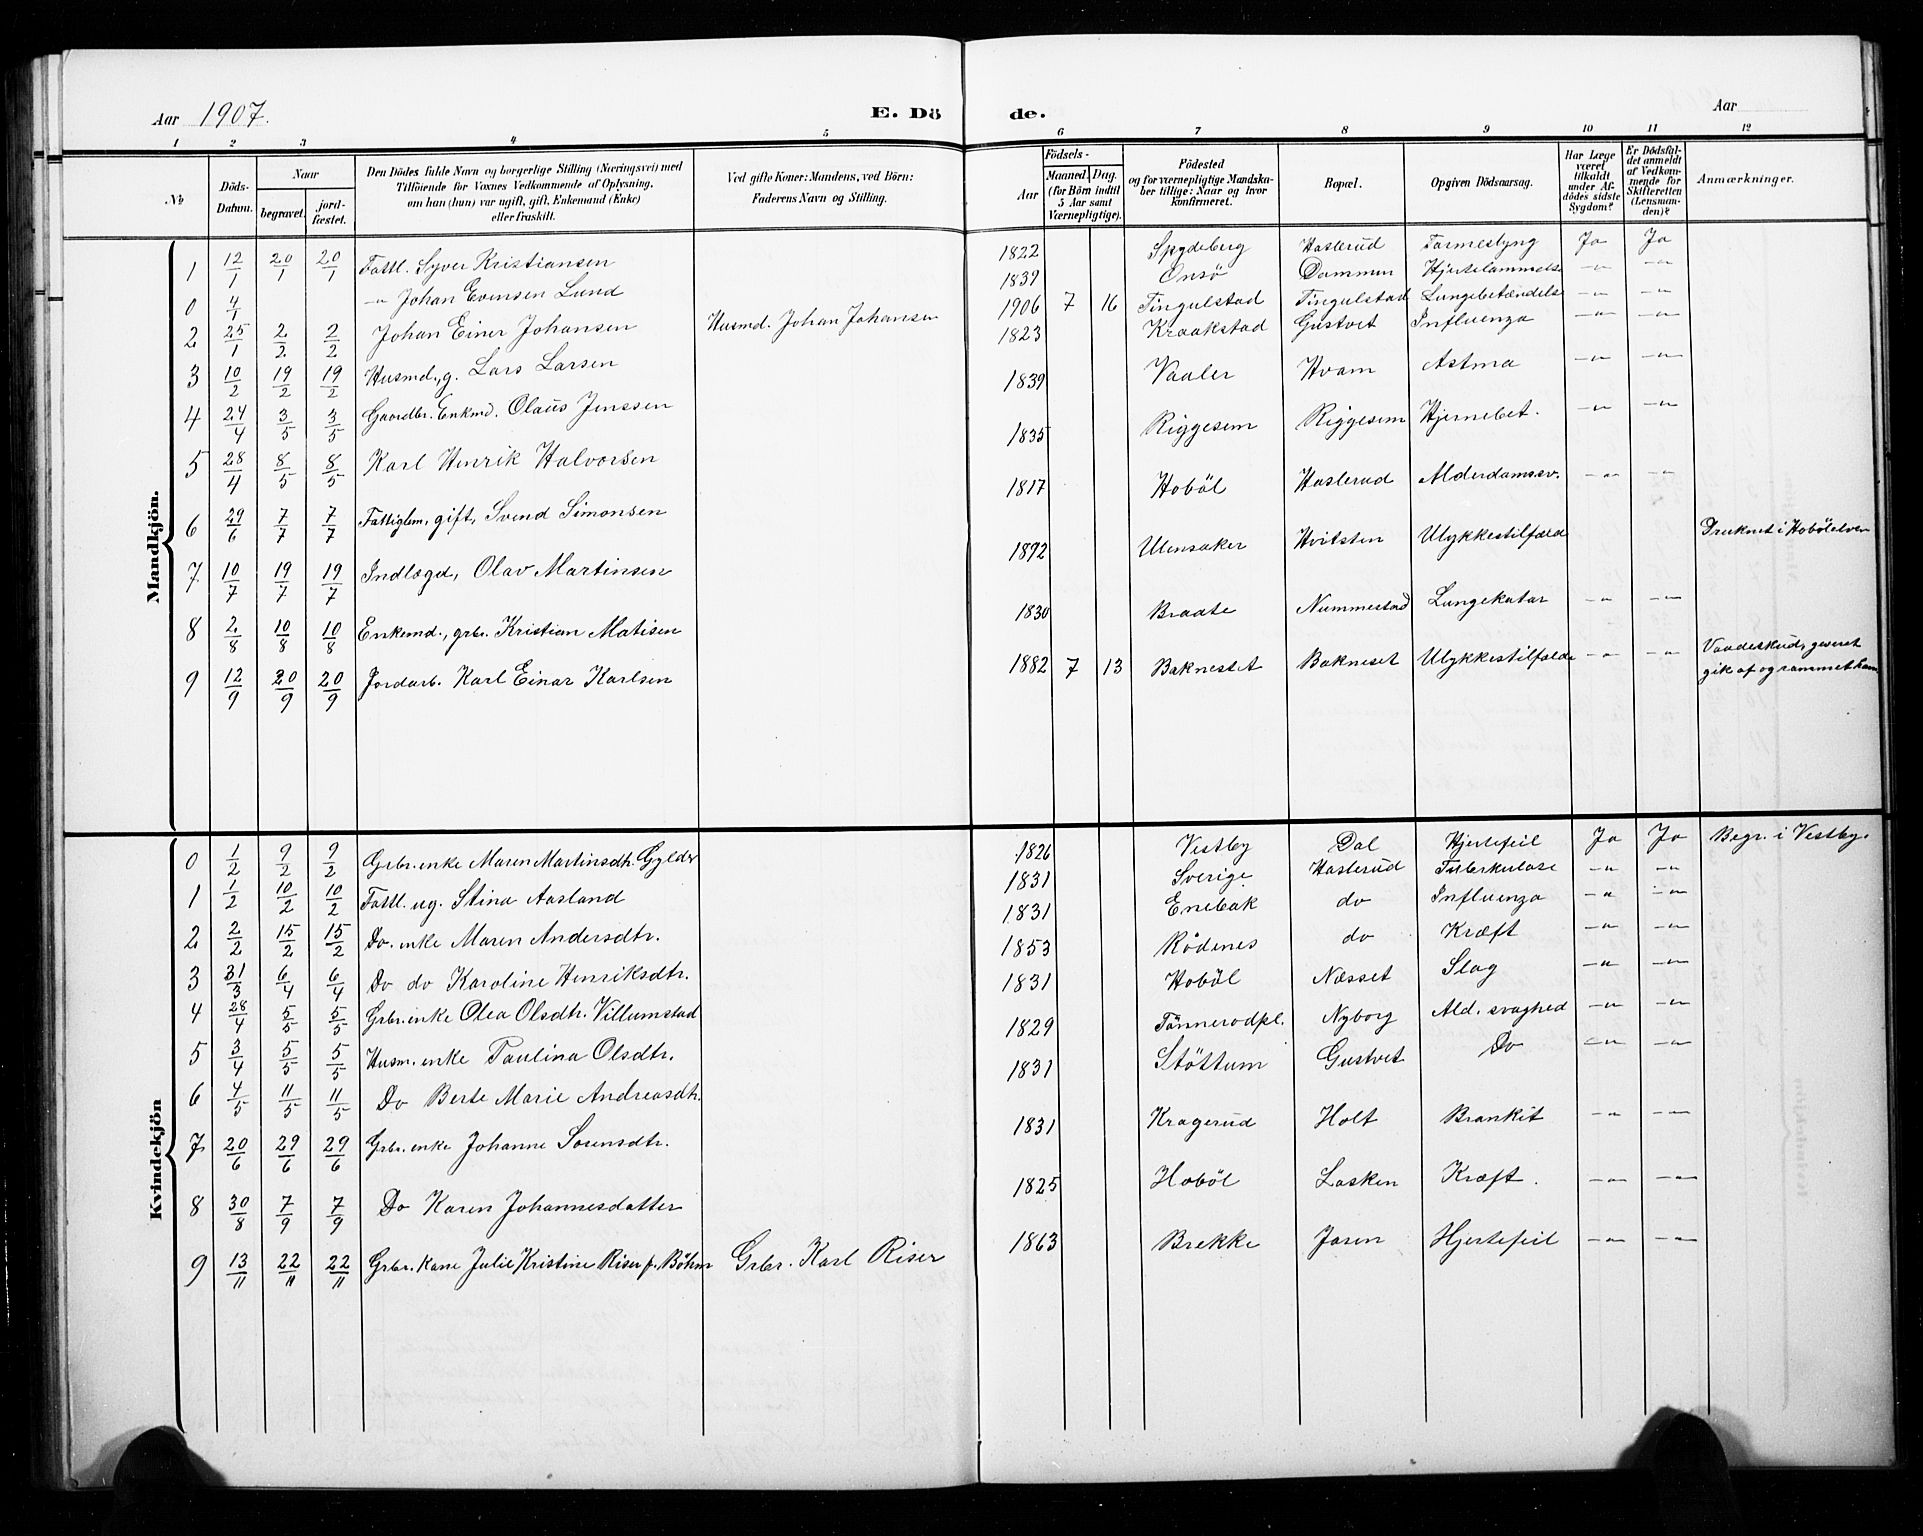 Aar 1907. E. Dö de. Aar
1 2 3 4 5 6 7 8 9 10 11 12
No | Döds-Datum. | Naar begravet. | jordfæstet. | Den Dödes fulde Navn og borgerlige Stilling (Næringsvei) med Tilföiende for Voxnes Vedkommende af Oplysning, om han (hun) var ugift, gift, Enkemand (Enke) eller fraskilt. | Ved gifte Koner: Mandens, ved Börn: Faderens Navn og Stilling. | Födsels- Aar | Maaned. Dag. (for Börn indtil 5 Aar samt Værnepligtige). | Födested og for værnepligtige Mandskaber tillige: Naar og hvor konfirmeret. | Bopæl. | Opgiven Dödsaarsag. | Har Læge været tilkaldt under Afdödes sidste Sygdom? | Er Dödsfaldet anmeldt af Vedkommende for Skifteretten (Lensmanden)? | Anmærkninger.
Mandkjön.
1 | 12/1 | 20/1 | 20/1 | Fattl. Syver Kristiansen | 1822 | Spydeberg | Haslerud | Tarmeslyng | Ja | Ja
0 | 4/1 | -"- Johan Evensen Lund | 1839 | Onsö | Dammen | Hjertelammelse | -"- | -"-
2 | 25/1 | 2/2 | 2/2 | Johan Einer Johansen | Husmd. Johan Johansen | 1906 | 7 | 16 | Tingulstad | Tingulstad | Lungebetændelse | -"- | -"-
3 | 10/2 | 19/2 | 19/2 | Husmd., g. Lars Larsen | 1823 | Kraakstad | Gustvet | Influenza | -"- | -"-
4 | 24/4 | 3/5 | 3/5 | Gaardbr. Enkmd. Olaus Jenssen | 1839 | Vaaler | Hvam | Astma | -"- | -"-
5 | 28/4 | 8/5 | 8/5 | Karl Henrik Halvorsen | 1835 | Riggesem | Riggesem | Hjernebet. | -"- | -"-
6 | 29/6 | 7/7 | 7/7 | Fattiglem, gift, Svend Simonsen | 1817 | Hoböl | Haslerud | Alderdomssv. | -"- | -"-
7 | 10/7 | 19/7 | 19/7 | Indlægd, Olav Martinsen | 1892 | Ulensaker | Hvitsten | Ulykkestilfælde | Druknet i Hobölelven
8 | 2/8 | 10/8 | 10/8 | Enkemd., grbr. Kristian Matisen | 1830 | Braate | Nummestad | Lungekatar | -"- | -"-
9 | 12/9 | 20/9 | 20/9 | Jordarb. Karl Einar Karlsen | 1882 | 7 | 13 | Baknestet | Bakneset | Ulykkestilfælde | -"- | -"- | Vaadeskud, geveret gik af og rammet ham
Kvindekjön
0 | 1/2 | 9/2 | 9/2 | Grbr. enke Maren Martinsdtr. Gylder | 1826 | Vestby | Dal | Hjertefeil | Ja | Ja | Begr. i Vestby.
1 | 1/2 | 10/2 | 10/2 | Fattl. ug. Stina Aasland | 1831 | Sverige | Haslerud | Tuberkulose | -"- | -"-
2 | 2/2 | 15/2 | 15/2 | Do. enke Maren Andersdtr. | 1831 | Enebak | do | Influenza | -"- | -"-
3 | 31/3 | 6/4 | 6/4 | Do do Karoline Henriksdtr. | 1853 | Rödenes | do | Kræft | -"- | -"-
4 | 28/4 | 5/5 | 5/5 | Grbr. enke Olea Olsdtr. Villumstad | 1831 | Hoböl | Næsset | Slag | -"- | -"-
5 | 3/4 | 5/5 | 5/5 | Husm. enke Paulina Olsdtr. | 1829 | Tönnerodpl. | Nyborg | Ald. svaghed | -"- | -"-
6 | 4/5 | 11/5 | 11/5 | Do Berte Marie Andreasdtr. | 1831 | Stöttum | Gustvet | Do | -"- | -"-
7 | 20/6 | 29/6 | 29/6 | Grbr. enke Johanne Sörensdtr. | 1831 | Kragerud | Holt | Brankit | -"- | -"-
8 | 30/8 | 7/9 | 7/9 | Do Karen Johannesdatter | 1825 | Hoböl | Lasken | Kræft. | -"- | -"-
9 | 13/11 | 22/11 | 22/11 | Grbr. kone Julie Kristine Riser f. Böhm | Grbr. Karl Riser | 1863 | Brekke | Jaren | Hjertefeil | -"- | -"-